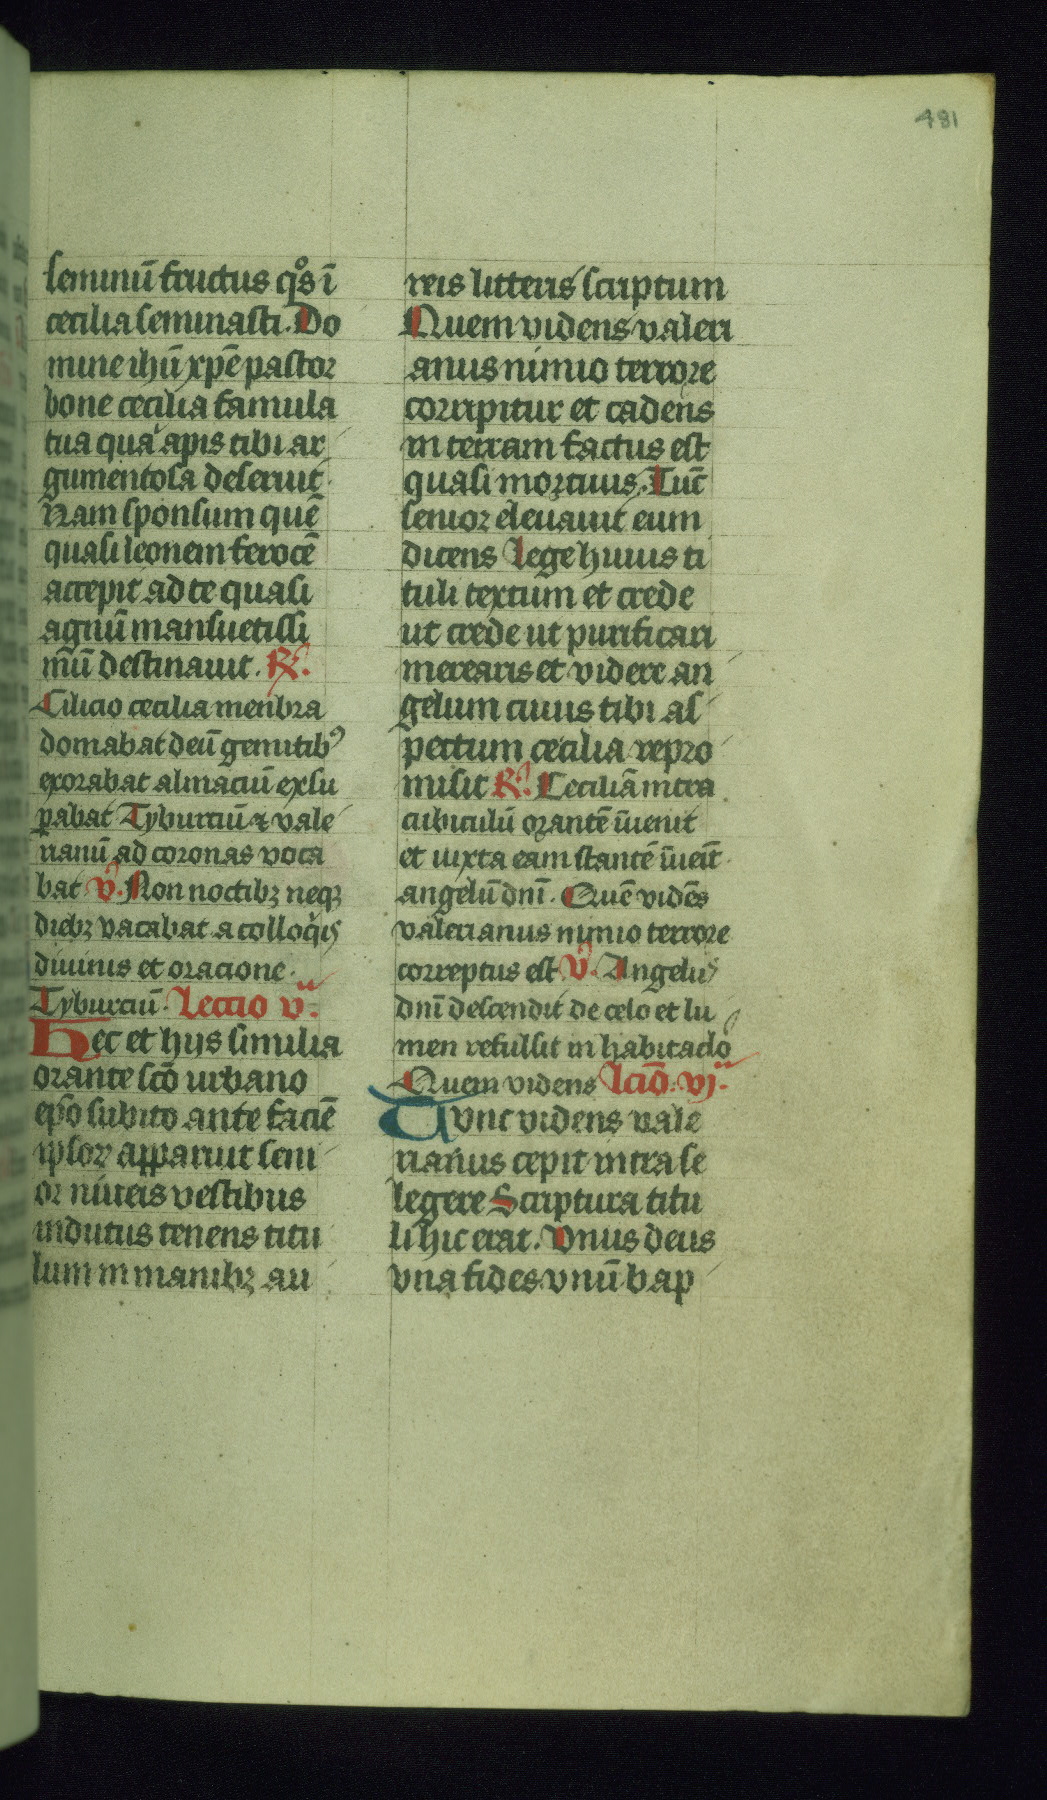 481
seminū fructus qͦs ī
cecilia seminasti. Do
mine ihū xpē pastor
bone cecilia famula
tua quaͣ apis tibi ar
gumentosa deseruit
Nam sponsum quē
quasi leonem ferocē
accepit ad te quasi
agnū mansuetissi
mū destinauit. R̄.
Cilicio cecilia menbra
domabat deū gemitibꝰ
exorabat almaciū exsu
ꝑabat Tyburciū ⁊ vale
rianū ad coronas voca
bat ℣. Non noctibꝫ neqꝫ
diebꝫ vacabat a colloqͥis
diuinis et oracione.
Tyburciū. Lectio v.ᵃ
Hec et hijs similia
orante scō urbano
epō subito ante faciē
ipsoꝝ apparuit seni
or niueis vestibus
indutus tenens titu
lum in manibꝫ au
reis litteris scriptum
Quem videns valeri
anus nimio terrore
corripitur et cadens
in terram factus est
quasi mortuus. Tūc
senior eleuauit eum
dicens Lege huius ti
tuli textum et crede
ut crede ut purificari
merearis et videre an
gelum cuius tibi as
pectum cecilia repro
misit R̄. Ceciliā intra
cubiculū orantē īuenit
et iuxta eam stantē īueīt
angelū dnī. Quē vidēs
valerianus nimio terrore
correptus est ℣. Angelus
dnī descendit de celo et lu
men refulsit in habitaclo
Quem videns lcīō. vj.ᵃ
Tvnc videns vale
rianus cepit intra se
legere Scriptura titu
li hic erat. Vnus deus
vna fides vnū bap